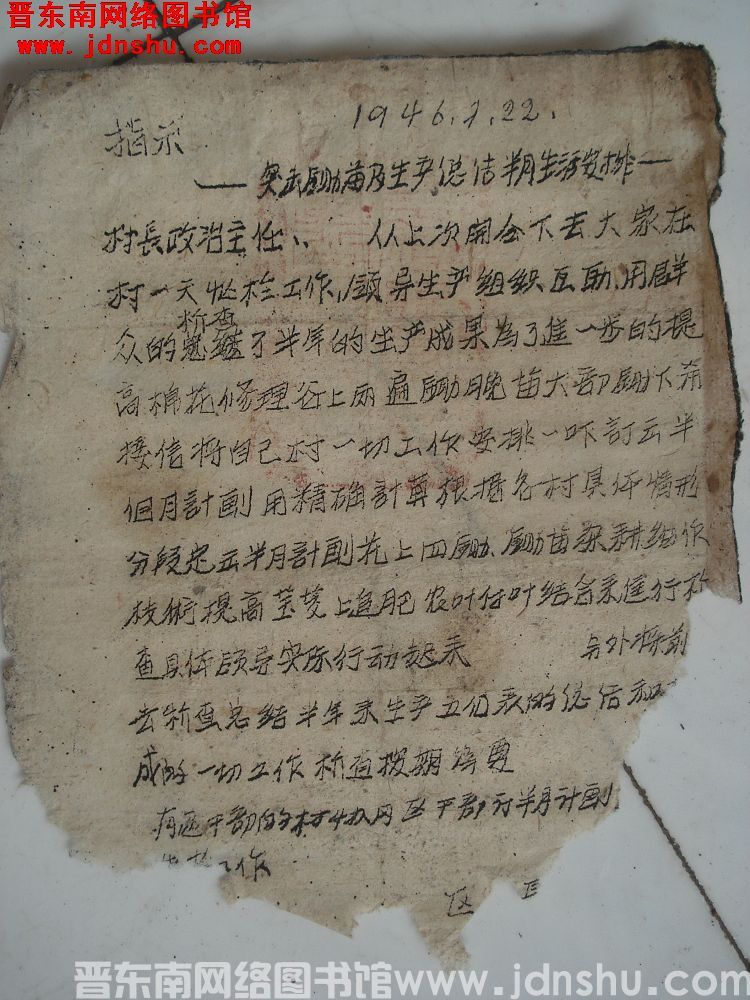 晋东南网络图书馆
www.jdnshu.com
1946.7.22.
指示
—突击锄苗及生产总结半月生活安排—
村長政治主任:从上次開会下去大家在
村一天忙於工作,領导生产組织互助,用群
檢查
众的总结了半年的生产成果為了進一步的提
高棉花修理谷上两遍锄晚苗大部锄下
接信將自己村一切工作安排一吓訂出半
個月計劃用精確計算根据各村具体情形
分段定出半月計劃花上四锄、锄苗深耕细作
技術提高茭上追肥农叶付叶结合来進行
查具体領导实际行动起来 另外将前
去檢查总结半年来生产五個表的总结和
成的一切工作檢查按期
有区干部的村协同区干部订半月计划
工作
区
晋东南网络图书馆www.jdnshu.com